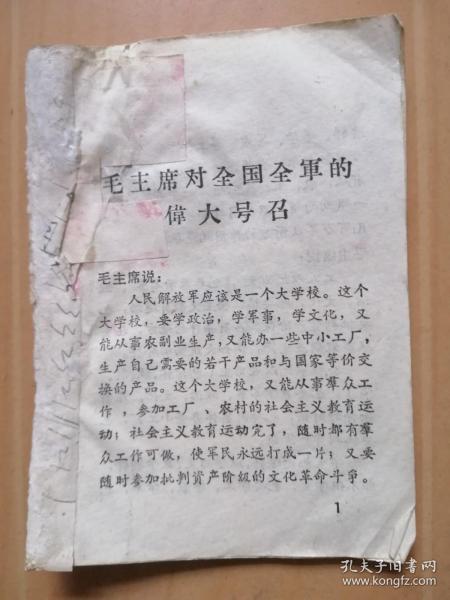 毛主席对全国全軍的
偉大号召
毛主席说：
人民解放军应该是一个大学校。这个
大学校，要学政治，学军事，学文化，又
能从事农副业生产，又能办一些中小工厂，
生产自己需要的若干产品和与国家等价交
换的产品。这个大学校，又能从事羣众工
作，参加工厂、农村的社会主义教育运
动；社会主义教育运动完了，随时都有羣
众工作可做，使军民永远打成一片；又要
随时参加批判资产阶级的文化革命斗争。
1
孔夫子旧书网
www.kongfz.com